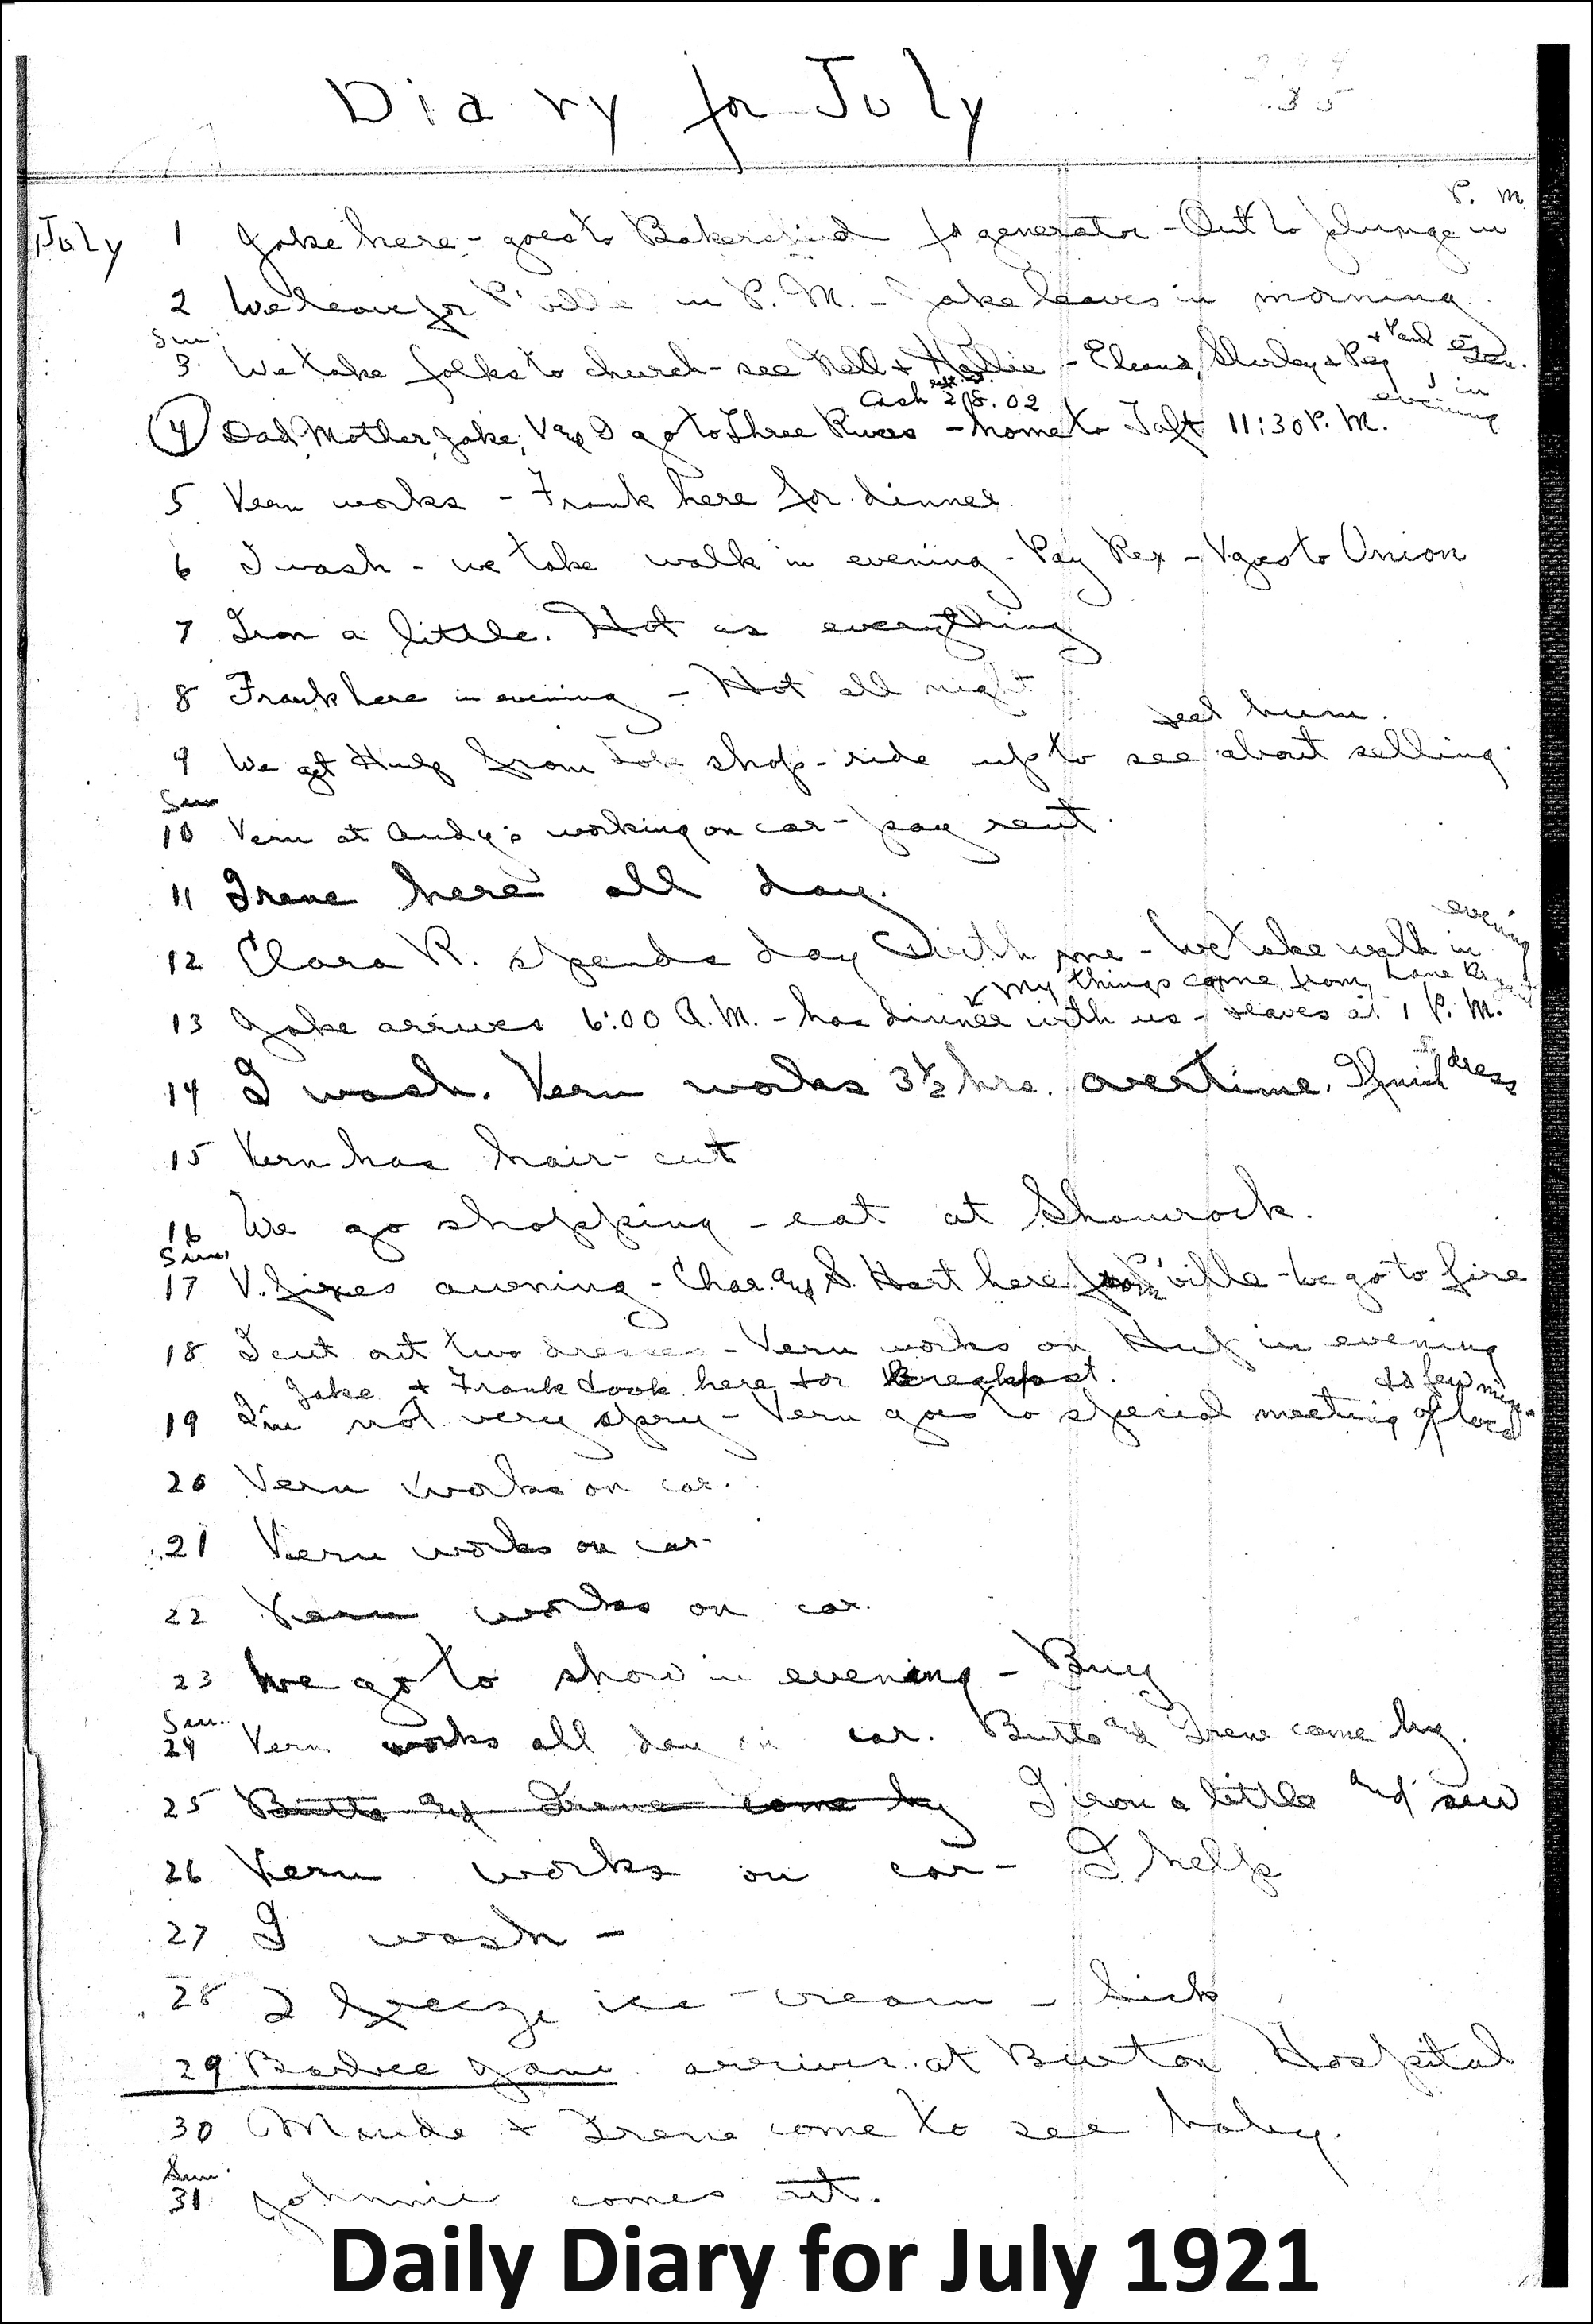 Diary for July
35
P. M.
July 1 Jake here - goes to Bakersfield for generator - Out to plunge in
2 We leave for P'ville in P. M. - Jake leaves in morning
Sun. 3. We take folks to church - see Nell + Hallie - Eleanor, Shirley & Peg + Paul
in evening
Cash 218.02
4 Dad, Mother, Jake, V and I go to Three Rivers - home to Taft 11:30 P. M.
5 Vern works - Frank here for dinner
6 I wash - we take walk in evening - Pay Rex - V goes to Union
7 Iron a little. Hot as everything
8 Frank here in evening - Hot all night
seat hum.
9 We get Hup from shop - ride up to see about selling.
Sun
10 Vern at Andy's working on car - pay rent.
11 Irene here all day.
evening
12 Clara R. spends day with me - We take walk in
My things come from Lane
13 Jake arrives 6:00 A.M. - has dinner with us - leaves at 1 P. M.
14 I wash. Vern works 3½ hrs. overtime. I finish dress
15 Vern has hair-cut
16 We go shopping - eat at Shamrock.
Sun.
17 V. fixes awning - Chas. and S. Hart here from P'ville - we go to fire
18 I cut out two dresses - Vern works on Hup in evening
Jake + Frank Cook here for Breakfast.
a few min.
19 I'm not very spry - Vern goes to special meeting of local
20 Vern works on car.
21 Vern works on car.
22 Vern works on car.
23 We go to show in evening - Buy
Sun.
24 Vern works all day on car. Butts and Irene come by.
25 Butts and Irene come by I iron a little and sew
26 Vern works on car - I help
27 I wash -
28 I freeze ice-cream - Sick
29 Barbee Jane arrives at Burton Hospital
30 Maude + Irene come to see baby.
Sun.
31 Johnnie comes out.
Daily Diary for July 1921